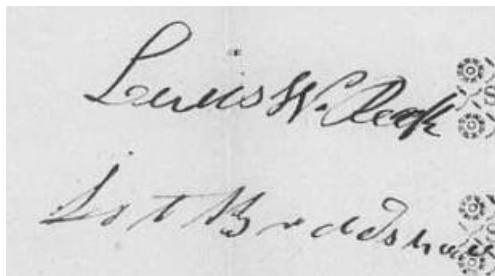 Lewis W. Clark
Lot Bradshaw